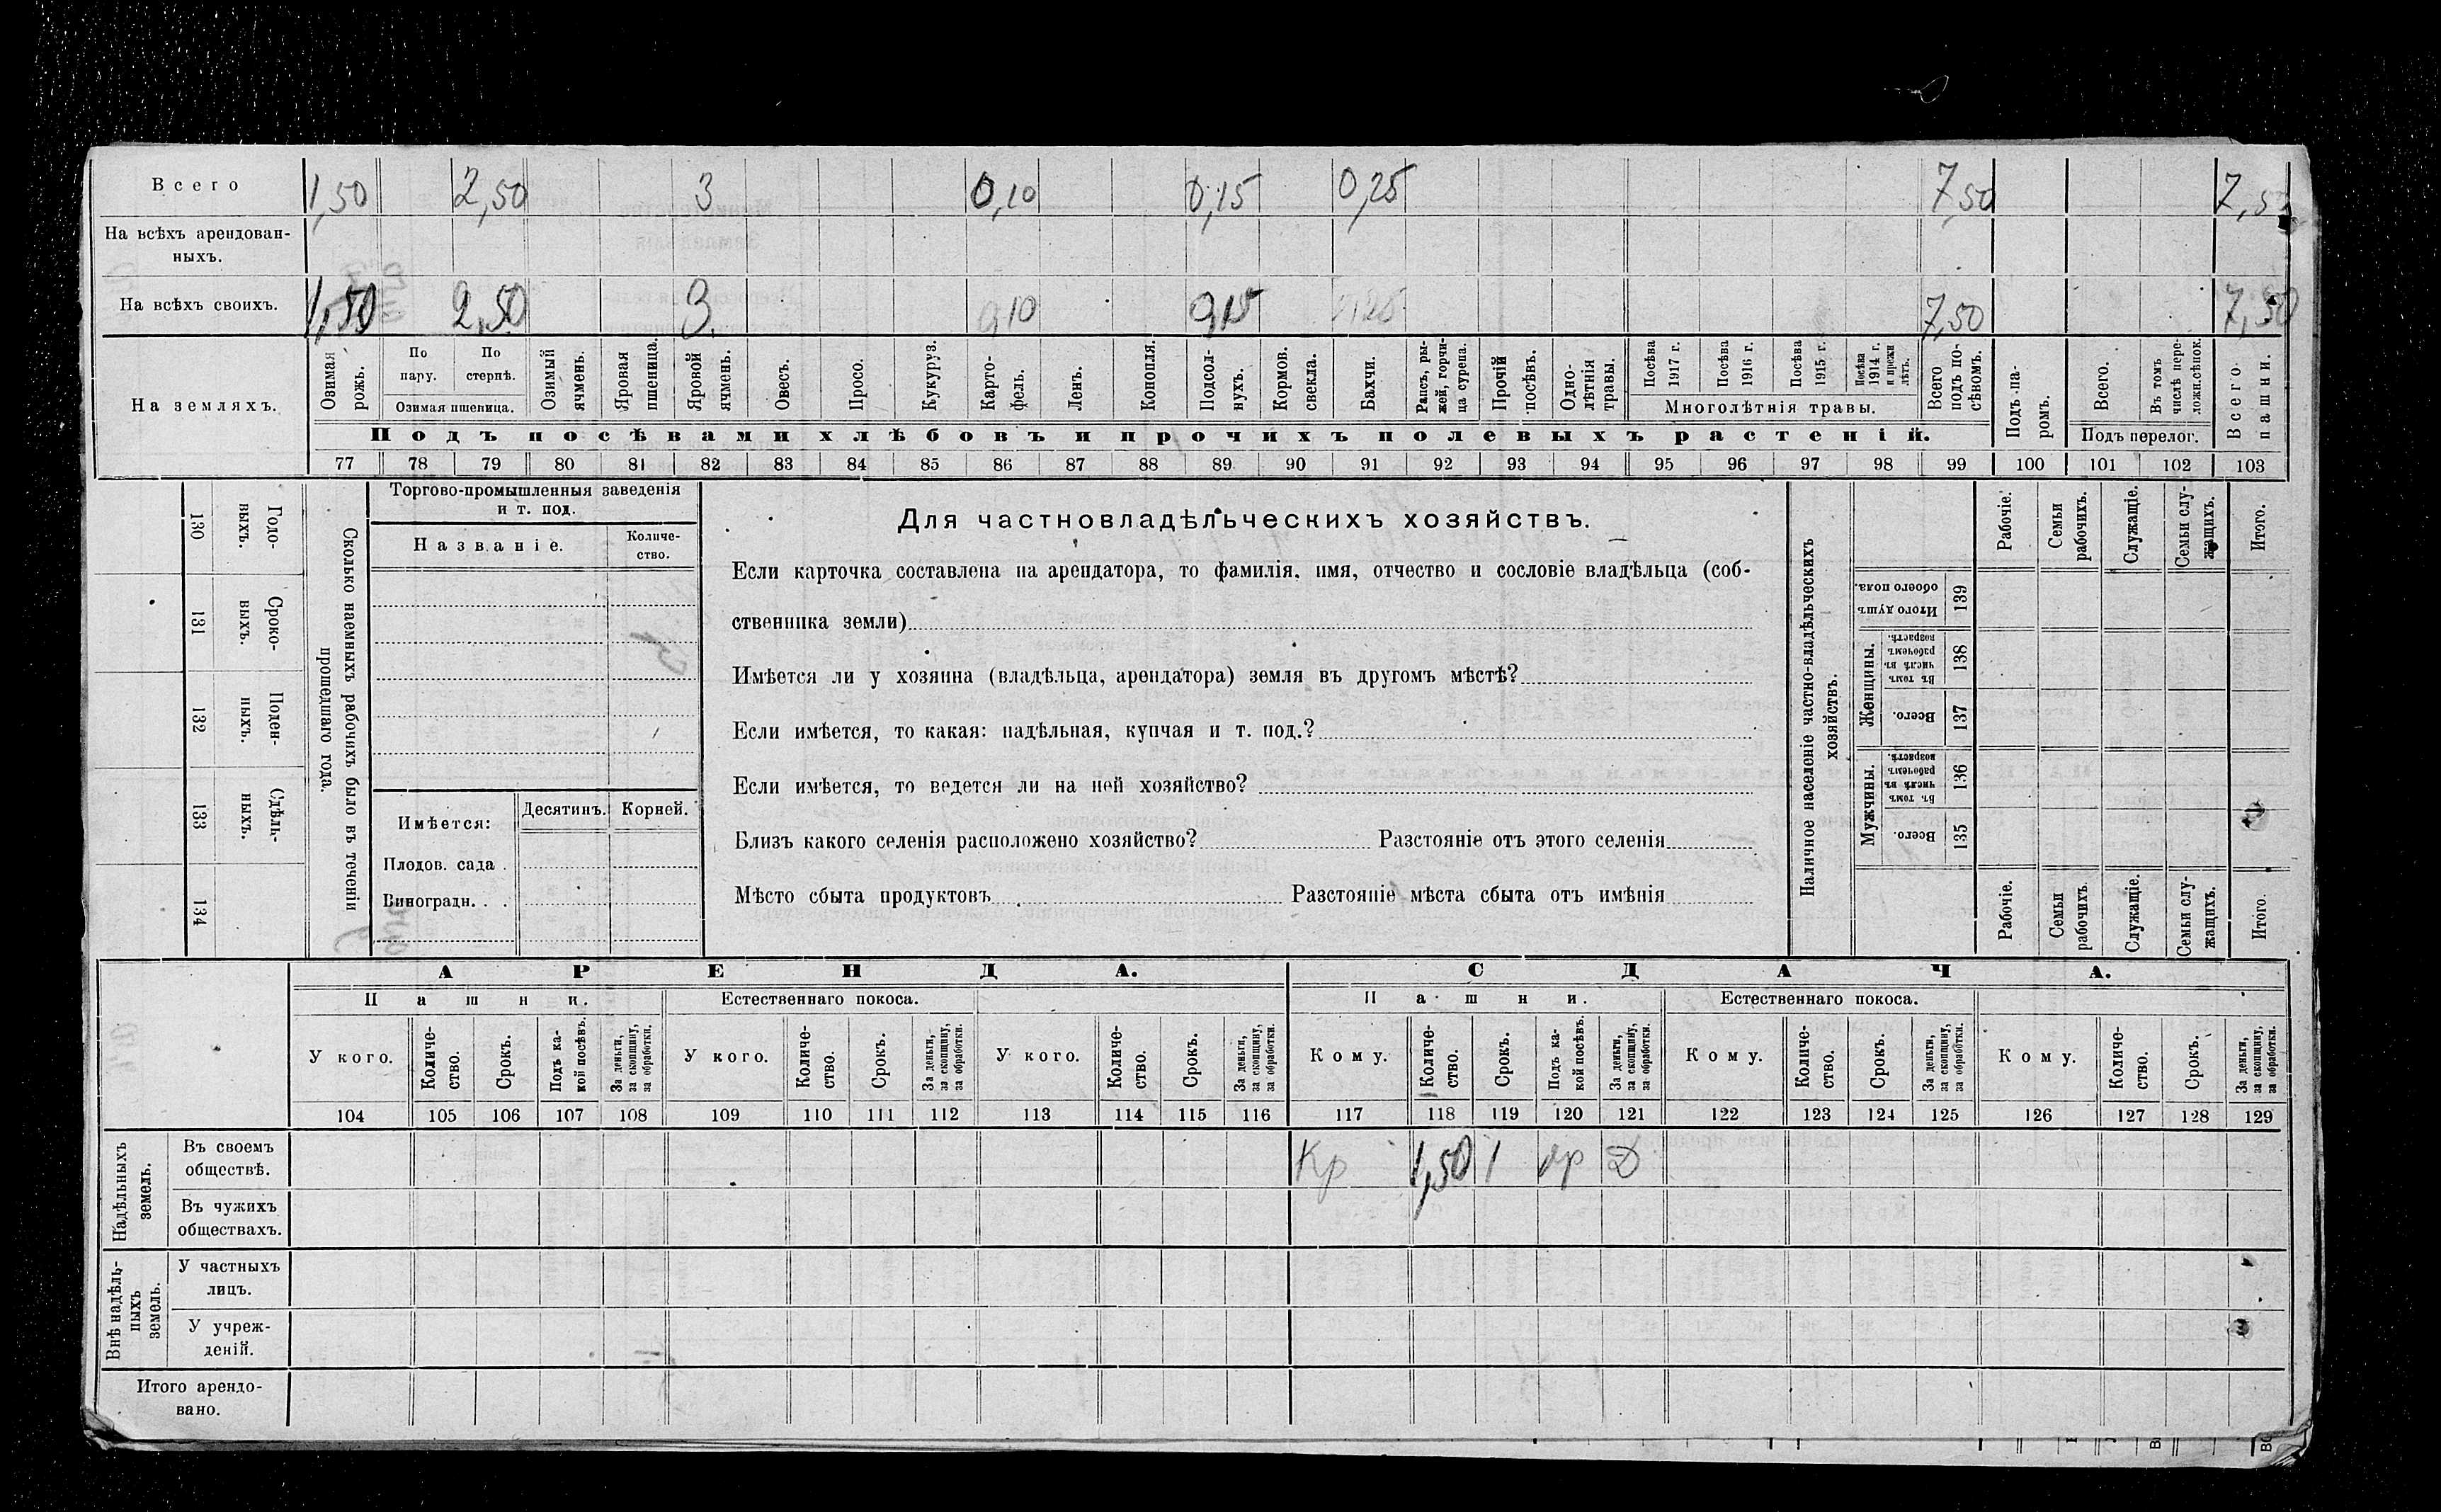 Всего 1,50 2,50 3 0,10 0,15 0,25 7,50 7,50
На всѣхъ арендован-
ныхъ.
На всѣхъ своихъ. 1,50 2,50 3 0,10 0,15 0,25 7,50 7,50
На земляхъ.
Озимая рожь.
По пару.
По стернѣ.
Озимая пшеница.
Озимый ячмень.
Яровая пшеница.
Яровой ячмень.
Овесъ.
Просо.
Кукуруз.
Карто-
фель.
Ленъ.
Конопля.
Подсол-
нухъ.
Кормов. свекла.
Бахчи.
Рапсъ, ры-
жей, горчи-
ца сурепа.
Прочій посѣвъ.
Одно-
лѣтнія травы.
Посѣва 1917 г.
Посѣва 1916 г.
Посѣва 1915 г.
Посѣва 1914 г. и прежн лѣтъ.
Многолѣтнія травы.
Всего подъ по-
сѣвомъ.
Подъ па-
ромъ.
Всего.
Въ томъ числѣ пере-
ложн.сѣнок.
Подъ перелог.
Всего пашни.
Подъ посѣвами хлѣбовъ и прочихъ полевыхъ растеній.
77 78 79 80 81 82 83 84 85 86 87 88 89 90 91 92 93 94 95 96 97 98 99 100 101 102 103
130 Годо-
выхъ.
131 Сроко-
выхъ.
132 Поден-
ныхъ.
133 Сдѣль-
ныхъ.
134
Сколько наемныхъ рабочихъ было въ теченіи
прошедшаго года.
Торгово-промышленныя заведенія
и т. под.
Названіе.
Количе-
ство.
Имѣется: Десятинъ. Корней.
Плодов. сада .
Виноградн. . .
Для частновладѣльческихъ хозяйствъ.
Если карточка составлена на арендатора, то фамилія, имя, отчество и сословіе владѣльца (соб-
ственника земли)
Имѣется ли у хозяина (владѣльца, арендатора) земля въ другомъ мѣстѣ?
Если имѣется, то какая: надѣльная, купчая и т. под.?
Если имѣется, то ведется ли на ней хозяйство?
Близъ какого селенія расположено хозяйство? Разстояніе отъ этого селенія
Мѣсто сбыта продуктовъ Разстояніе мѣста сбыта отъ имѣнія
Наличное населеніе частно-владѣльческихъ
хозяйствъ.
Рабочіе.
Семьи рабочихъ.
Служащіе.
Семьи слу-
жащихъ.
Итого.
Итого душъ обоего пола. 139
Женщины.
Въ томъ числѣ въ рабочемъ возрастѣ. 138
Всего. 137
Мужчины.
Въ томъ числѣ въ рабочемъ возрастѣ. 136
Всего. 135
Рабочіе.
Семьи рабочихъ.
Служащіе.
Семьи слу-
жащихъ.
Итого.
АРЕНДА. СДАЧА.
Пашни. Естественнаго покоса. Пашни. Естественнаго покоса.
У кого.
Количе-
ство.
Срокъ.
Подъ ка-
кой посѣвъ.
За деньги, за скопщину, за обработки.
У кого.
Количе-
ство.
Срокъ.
За деньги, за скопщину, за обработки.
У кого.
Количе-
ство.
Срокъ.
За деньги, за скопщину, за обработки.
Кому.
Количе-
ство.
Срокъ.
Подъ ка-
кой посѣвъ.
За деньги, за скопщину, за обработки.
Кому.
Количе-
ство.
Срокъ.
За деньги, за скопщину, за обработки.
Кому.
Количе-
ство.
Срокъ.
За деньги, за скопщину, за обработки.
104 105 106 107 108 109 110 111 112 113 114 115 116 117 118 119 120 121 122 123 124 125 126 127 128 129
Надѣльныхъ
земель.
Въ своемъ
обществѣ.
Кр 1,50 1 яр Д
Въ чужихъ
обществахъ.
Внѣ надѣль-
ныхъ
земель.
У частныхъ
лицъ.
У учреж-
деній.
Итого арендо-
вано.